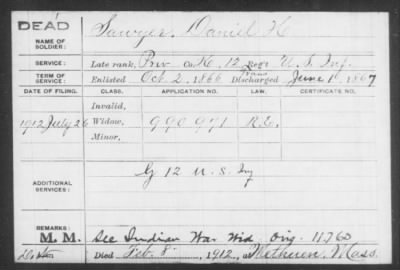 DEAD
NAME OF SOLDIER: Sawyer, Daniel H
SERVICE: Late rank, Priv Co. K, 12 Reg't U. S. Inf.
TERM OF SERVICE: Enlisted Oct 2, 1866 Trans Discharged June 1, 1867
DATE OF FILING. CLASS. APPLICATION NO. LAW. CERTIFICATE NO.
Invalid,
1912 July 26 Widow, 990 971
Minor,
ADDITIONAL SERVICES: G 12 U.S. Inf
REMARKS:
M. M. See Indian War Wid. Orig. 11760
Died Feb. 8, 1912, at Methuen, Mass.